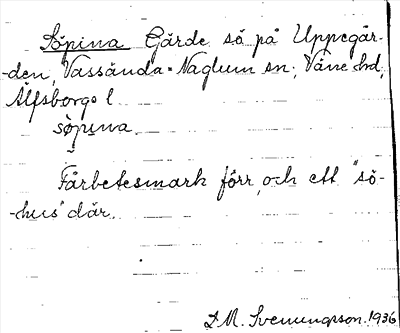 Söpina Gärde så på Uppegår-
-den, Vassända-Naglum sn; Väne hd,
Älfsborgs l
söpina
Fårbetesmark förr, och ett "sö-
-hus" där.
D.M. Svenungsson. 1936